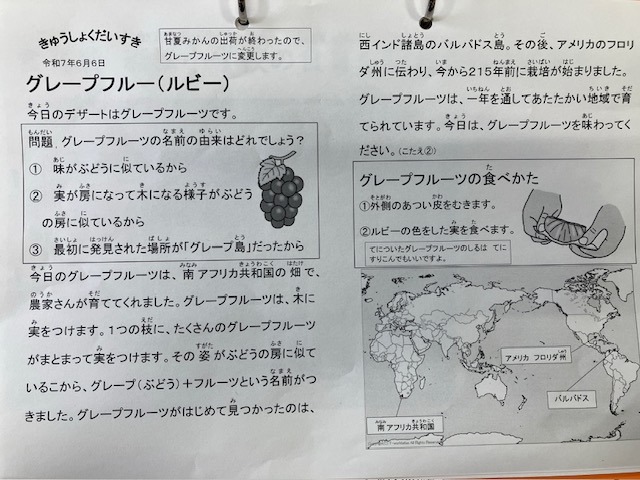 きゅうしょくだいすき
令和7年6月6日
甘夏みかんの出荷が終わったので、
グレープフルーツに変更します。
グレープフルー(ルビー)
今日のデザートはグレープフルーツです。
問題、グレープフルーツの名前の由来はどれでしょう?
① 味がぶどうに似ているから
② 実が房になって木になる様子がぶどう
の房に似ているから
③ 最初に発見された場所が「グレープ島」だったから
今日のグレープフルーツは、南アフリカ共和国の畑で、
農家さんが育ててくれました。グレープフルーツは、木に
実をつけます。1つの枝に、たくさんのグレープフルーツ
がまとまって実をつけます。その姿がぶどうの房に似て
いるこから、グレープ(ぶどう)+フルーツという名前がつ
きました。グレープフルーツがはじめて見つかったのは、
西インド諸島のバルバドス島。その後、アメリカのフロリ
ダ州に伝わり、今から215年前に栽培が始まりました。
グレープフルーツは、一年を通してあたたかい地域で育
てられています。今日は、グレープフルーツを味わってく
ださい。(こたえ②)
グレープフルーツの食べかた
①外側のあつい皮をむきます。
②ルビーの色をした実を食べます。
てについたグレープフルーツのしるは てに
すりこんでもいいですよ。
アメリカ フロリダ州
バルバドス
南アフリカ共和国